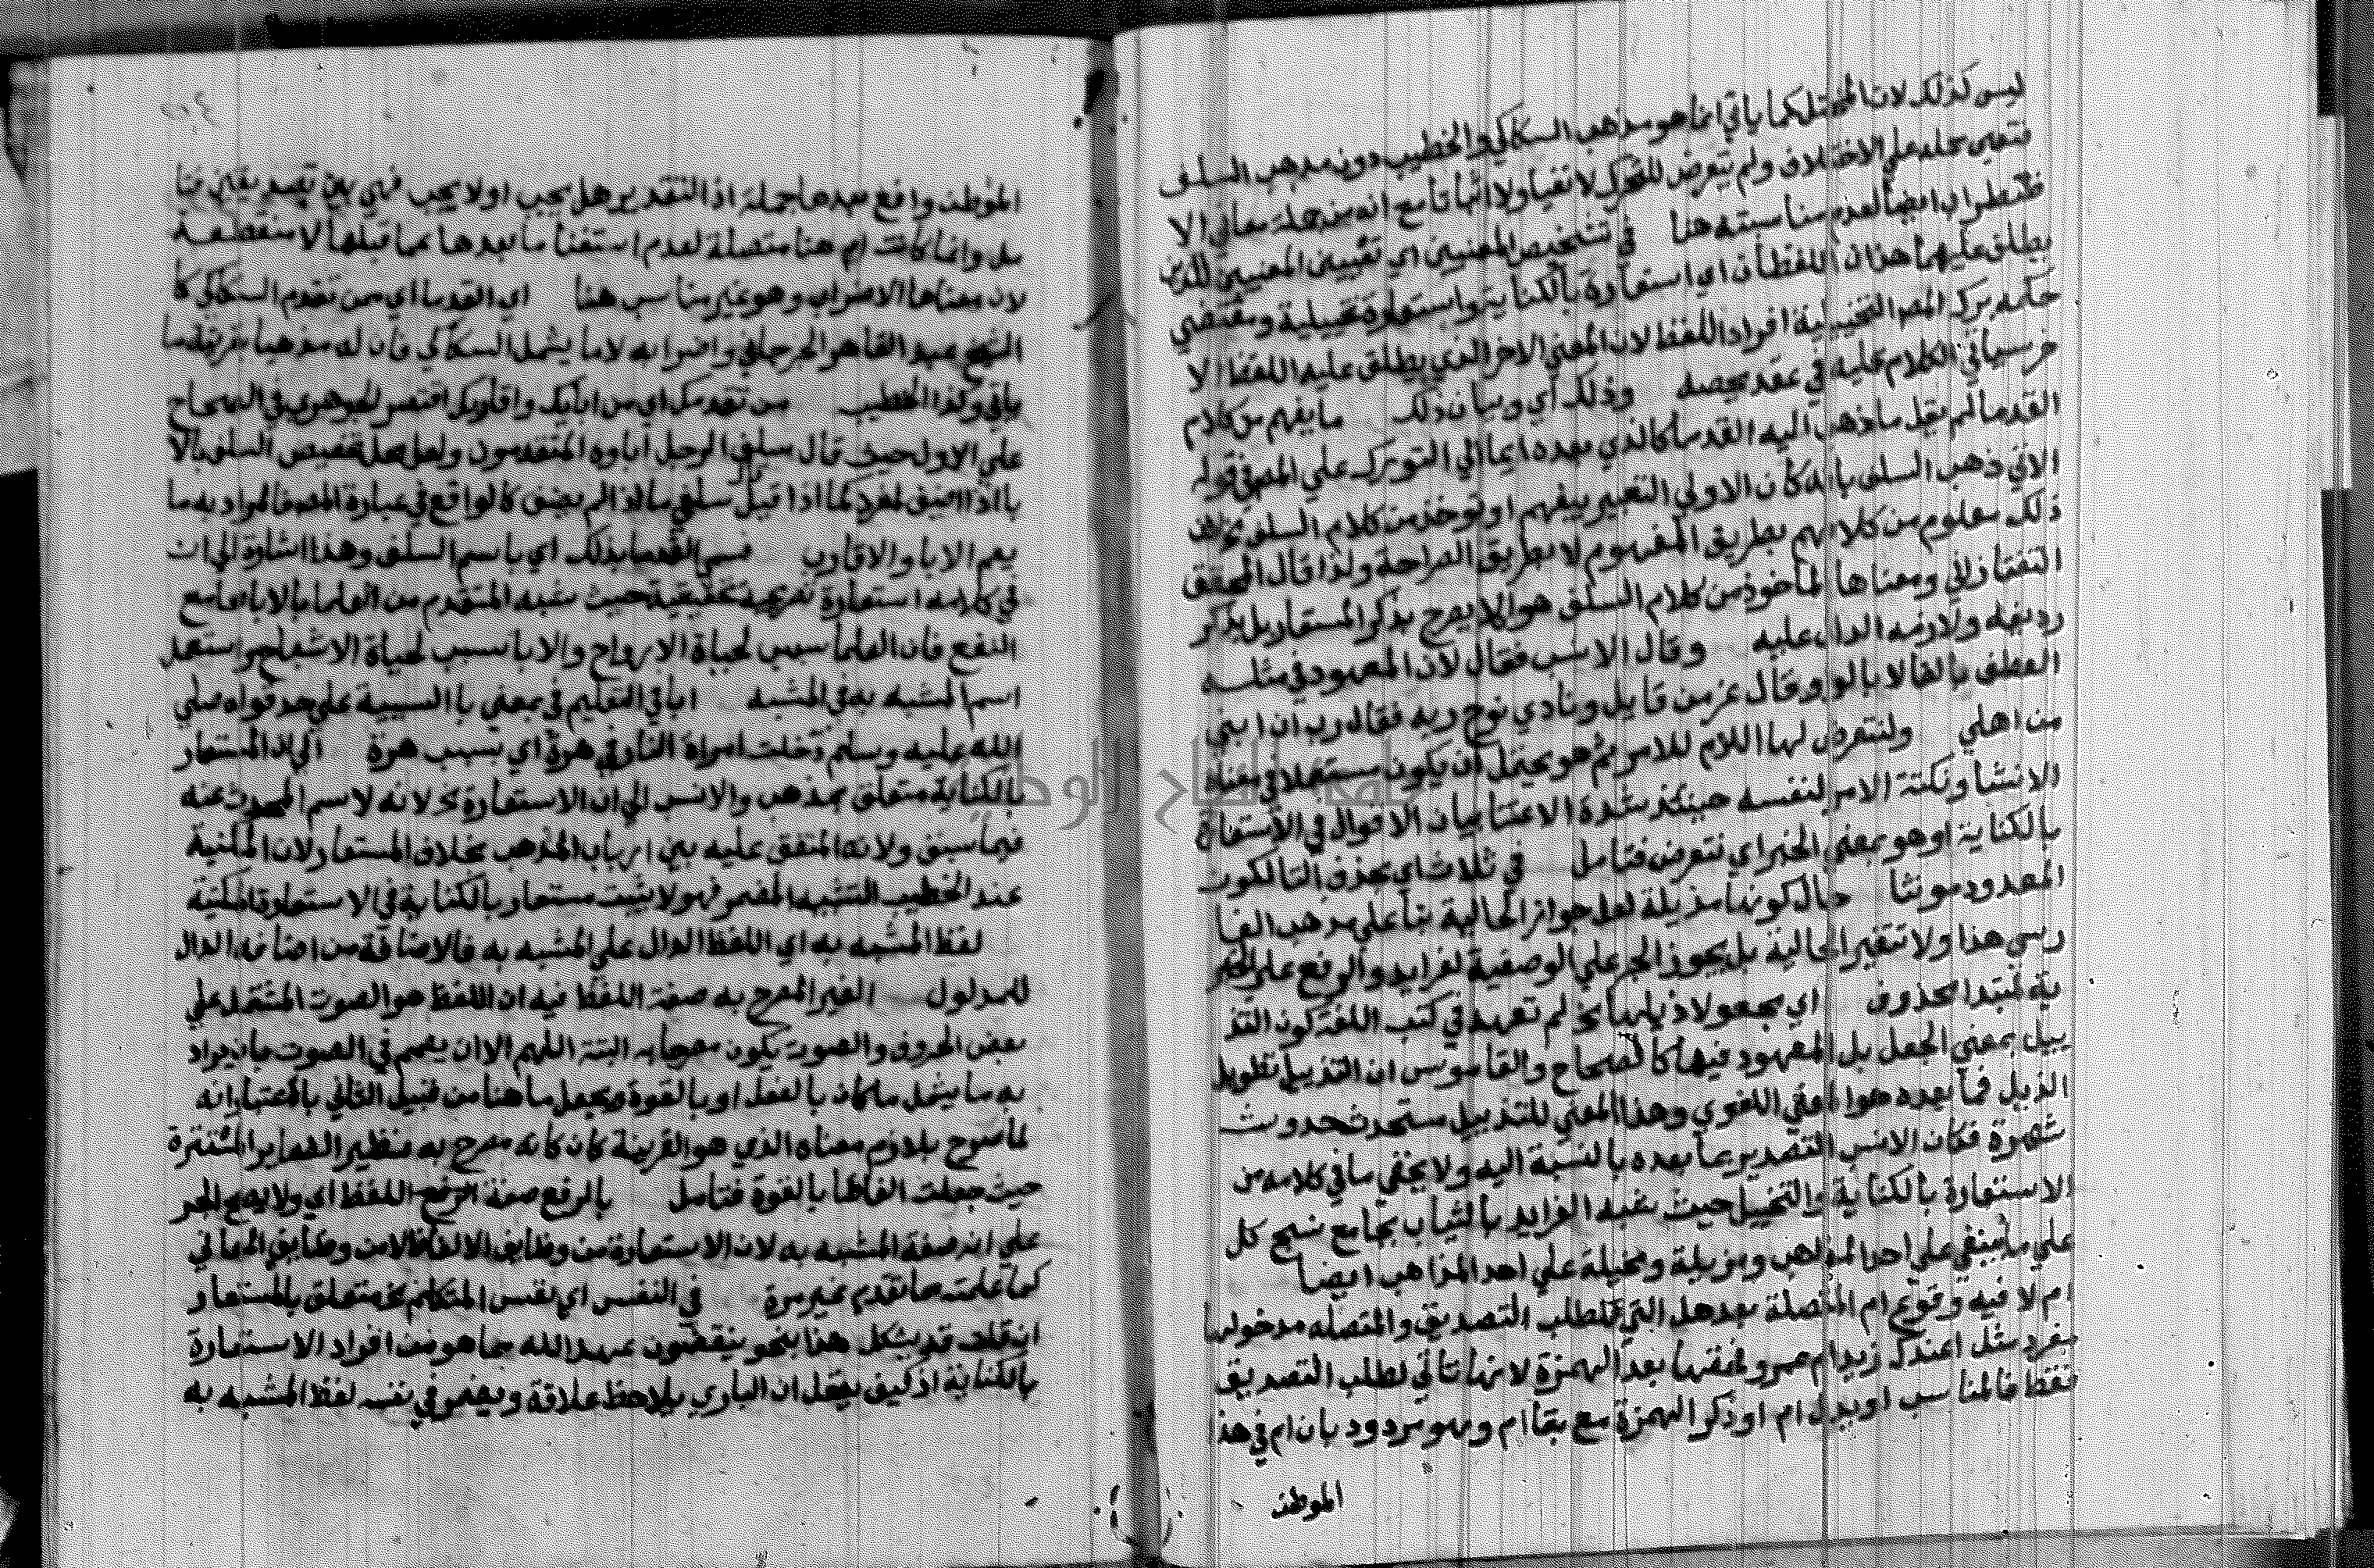 ليس كذلك لان المحتمل كما ياتي انما هو مذهب السكاكي والخطيب دون مذهب السلف
فتعين حمله علي الاختلاف ولم يتعرض للمشترك لا نفيا ولا اثباتا مع انه من جملة معاني الا
ايضا لعدم مناسبته هنا في تشخيص المعنيين اي تعيين المعنيين اللذين
يطلق عليهما هذان اللفظان اي استعارة بالكناية واستعارة تخييلية ومقتضي
ترك المص التخييلية افراد اللفظ لان المعني الاخر الذي يطلق عليه اللفظ الا
خر سياتي الكلام عليه في عقد يخصه وذلك اي وبيان ذلك ما يفهم من كلام
القدما لم يقل ما ذهب اليه القدما كالذي بعده ايما الي التورك علي المص في قوله
الاتي ذهب السلف بانه كان الاولي التعبير بيفهم او توخذ من كلام السلف
ذلك معلوم من كلامهم بطريق المفهوم لا بطريق الصراحة ولذا قال المحقق
التفتازاني ومعناها الماخوذ من كلام السلف هو الا يصرح بذكر المستعار بل بذكر
رديفه ولازمه الدال عليه وقال الانسب فقال لان المعهود في مثله
العطف بالفا لا بالواو وقال عز من قايل ونادي نوح ربه فقال رب ان ابني
من اهلي ولنتعرض لها اللام للامر ثم هو يحتمل ان يكون مستعملا في معناه
الانشا ونكتة الامر لنفسه حينئذ شدة الاعتنا ببيان الاقوال في الاستعارة
بالكناية او هو بمعني الخبر اي نتعرض فتامل في ثلاث اي بحذف التا لكون
المعدود مونثا حال كونها مذيلة لعل جواز الحالية بنا علي مذهب الفا
رسي هذا ولا تتعين الحالية بل يجوز الجر علي الوصفية لفرايد والرفع علي الخبر
ية لمبتدا محذوف اي بجعولا ذيلها لم تعهد في كتب اللغة كون التذ
ييل بمعني الجعل بل المعهود فيها كالصحاح والقاموس ان التذييل تطويل
الذيل فما بعده هو المعني اللغوي وهذا المعني للتذييل مستحدث فحدوث
شهرة فكان الانسب التصدير بما بعده بالنسبة اليه ولا يخفي ما في كلامه من
الاستعارة بالكناية والتخييل حيث شبه الفرايد بالثياب بجامع نسج كل
علي ما ينبغي علي احد المذاهب ومذيلة ومخيلة علي احد المذاهب ايضا
ام لا فيه وقوع ام المتصلة بعد هل التي لطلب التصديق والمتصلة مدخولها
مفرد مثل اعندك زيد ام عمرو لحقتها بعد الهمزة لانها تاتي لطلب التصديق
فقط فالمناسب او بدل ام او ذكر الهمزة مع بقا ام وهو مردود بان ام في هذ
الموطن
الموطن واقع بعدها جملة اذ التقدير هل يجب او لا يجب فهي
وانما كانت ام هنا متصلة لعدم استغنا ما بعدها عما قبلها لا منقطعة
لان معناها الاضراب وهو غير مناسب هنا اي القدما اي من تقدم السكاكي كا
الشيخ عبد القاهر الجرجاني واضرابه لا ما يشمل السكاكي فان له مذهبا بقرينة ما
ياتي وكذا الخطيب من تقدمك اي من ابايك واقاربك اقتصر الجوهري في الصحاح
علي الاول حيث قال سلف الرجل اباوه المتقدمون ولعل محل تخصيص السلف بالا
با اذا اضيف لمفرد كما اذا قيل سلفي ما اذا لم يضف كالواقع في عبارة المص فالمراد به ما
يعم الابا والاقارب فسمي القدما بذلك اي باسم السلف وهذا اشارة الي ان
في كلامه استعارة تصريحية تحقيقية حيث شبه المتقدم من العلما بالابا بجامع
النفع فان العلما سبب لحياة الارواح والابا سبب لحياة الاشباح واستعمل
اسم المشبه به في المشبه اباي التعليم في بمعني با السببية علي حد قوله صلي
الله عليه وسلم دخلت امراة النار في هرة اي بسبب هرة الي ان المستعار
بالكناية متعلق بمذهب والانسب الي ان الاستعارة لانه لاسم المحدث عنه
فيما سبق ولانه المتفق عليه بين ارباب المذهب بخلاف المستعار لان المكنية
عند الخطيب التشبيه المضمر فهو لا يثبت مستعار بالكناية في الاستعارة المكنية
لفظ المشبه به اي اللفظ الدال علي المشبه به فالاضافة من اضافة الدال
للمدلول الغير المصرح به صفة اللفظ فيه ان اللفظ هو الصوت المشتمل علي
بعض الحروف والصوت يكون مصرحا به البتة اللهم الا ان يعمم في الصوت بان يراد
به ما يشمل ما كان بالفعل او بالقوة ويجعل ما هنا من قبيل الثاني باعتبار انه
لما صرح بلازم معناه الذي هو القرينة كان كانه مصرح به فنظير الضماير المستترة
حيث جعلت الفاظا بالقوة فتامل بالرفع صفة اللفظ اي ولا يصح الجر
علي انه صفة المشبه به لان الاستعارة من وظايف الالفاظ لا من وظايف المعاني
كما علمت مما تقدم غير مرة في النفس اي نفس المتكلم متعلق بالمستعار
ان قلت قد يشكل هذا بنحو ينقضون عهد الله مما هو من افراد الاستعارة
بالكناية اذ كيف يعقل ان الباري يلاحظ علاقة ويضمر في نفسه لفظ المشبه به